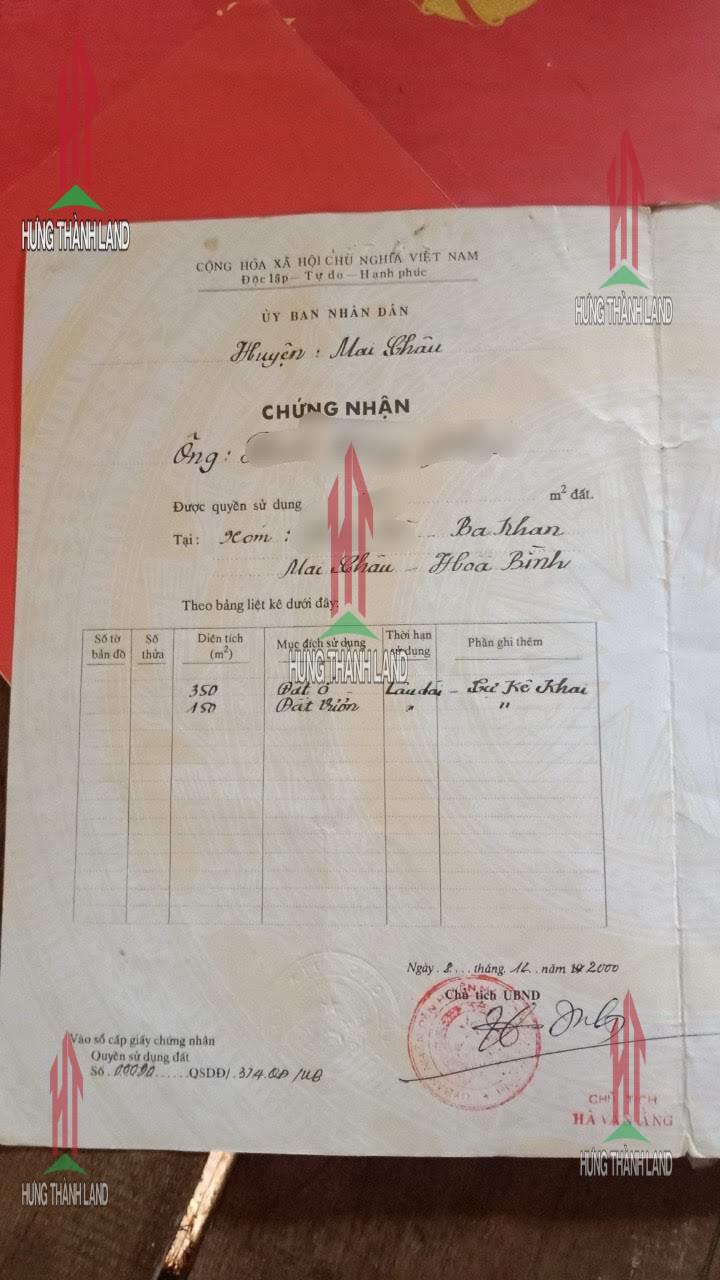 HƯNG THÀNH LAND
HƯNG THÀNH LAND
CỘNG HÒA XÃ HỘI CHỦ NGHĨA VIỆT NAM
Độc lập – Tự do – Hạnh phúc
ỦY BAN NHÂN DÂN
Huyện : Mai Châu
CHỨNG NHẬN
Ông :
Được quyền sử dụng m² đất.
Tại : Xóm : Ba Khan
Mai Châu – Hoà Bình
Theo bảng liệt kê dưới đây:
Số tờ bản đồ Số thửa Diện tích (m²) Mục đích sử dụng Thời hạn sử dụng Phần ghi thêm
HƯNG THÀNH LAND
350 Đất ở – Lâu dài – Tự Kê Khai
150 Đất vườn " "
Ngày . 8 . . . tháng. 12 . . năm 2000
Chủ tịch UBND
Vào sổ cấp giấy chứng nhận
Quyền sử dụng đất
Số . 00090 . . . . . . QSDĐ/ . 374.QĐ/UB
CHỦ TỊCH
HƯNG THÀNH LAND
HƯNG THÀNH LAND